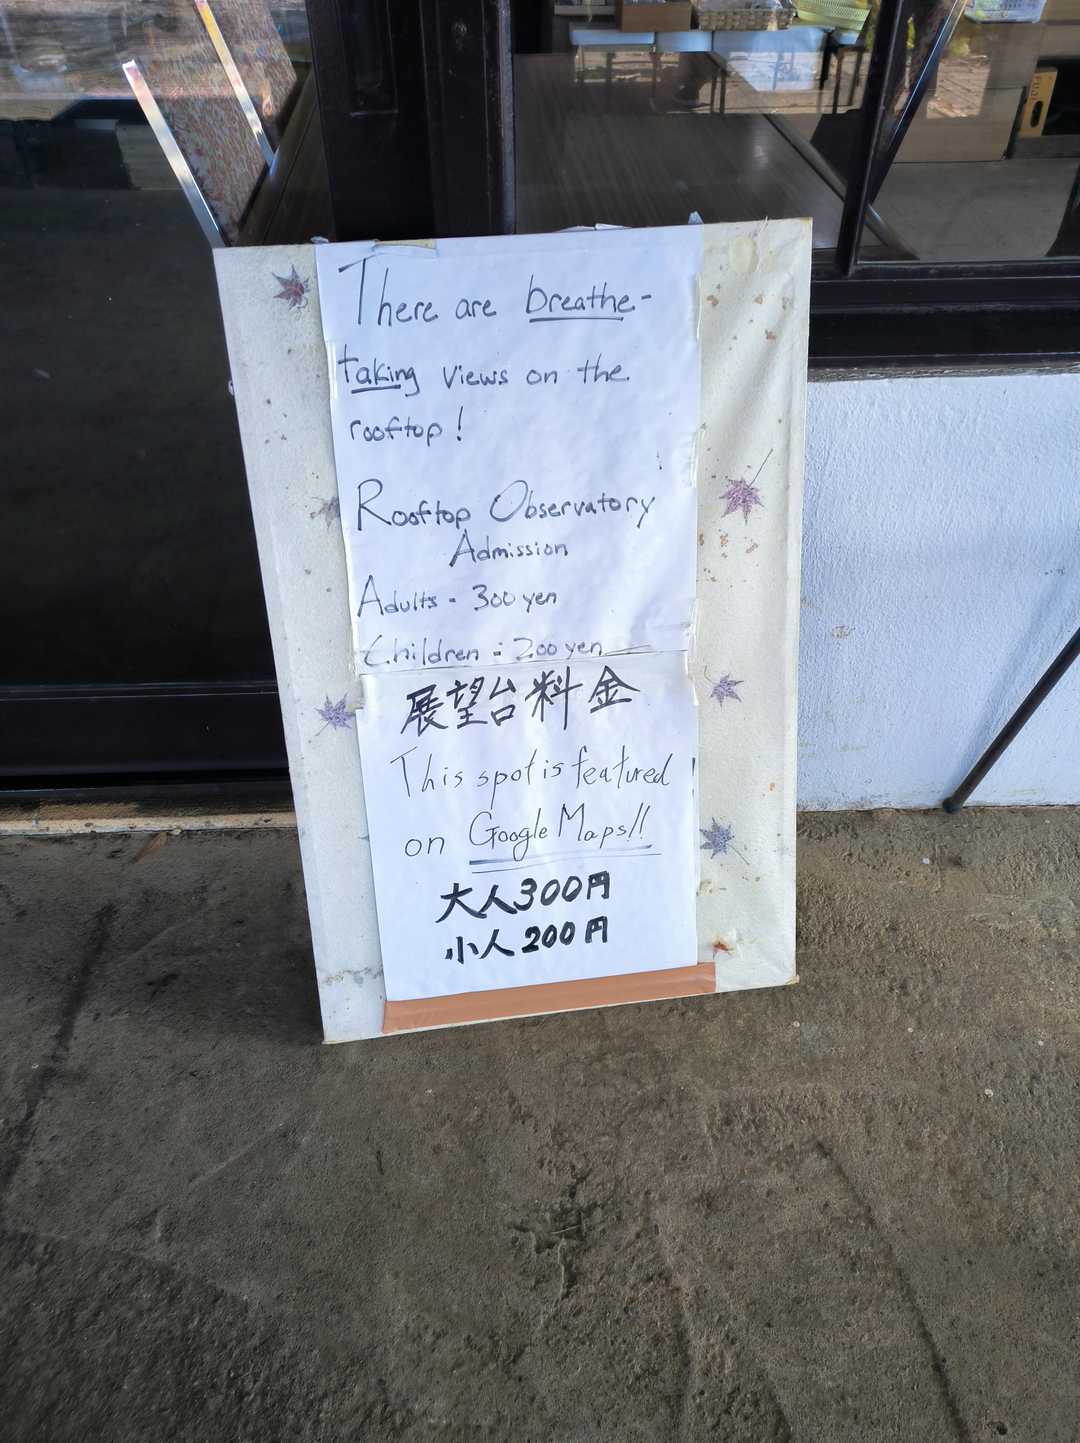 There are breathe-
taking views on the
rooftop!
Rooftop Observatory
Admission
Adults - 300 yen
Children - 200 yen
展望台料金
This spot is featured
on Google Maps!!
大人300円
小人200円